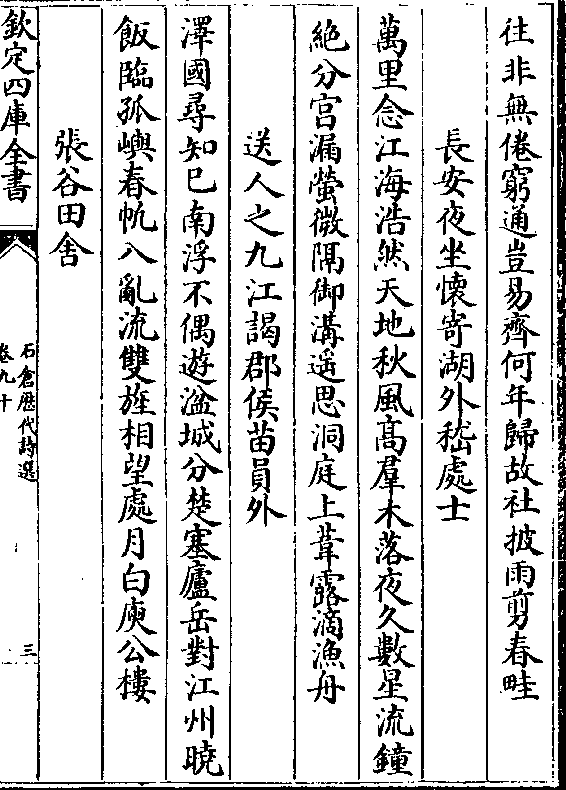 往非無倦窮通豈易齊何年歸故社披雨剪春畦
長安夜坐懷寄湖外嵇處士
萬里念江海浩然天地秋風髙羣木落夜久數星流鐘
絶分宫漏螢微隔御溝遥思洞庭上葦露滴漁舟
送人之九江謁郡侯苗員外
澤國尋知已南浮不偶遊湓城分楚塞廬岳對江州曉
飯臨孤嶼春帆入亂流雙旌相望處月白庾公樓
張谷田舍
欽定四庫全書
石倉歴代詩選
卷九十
三